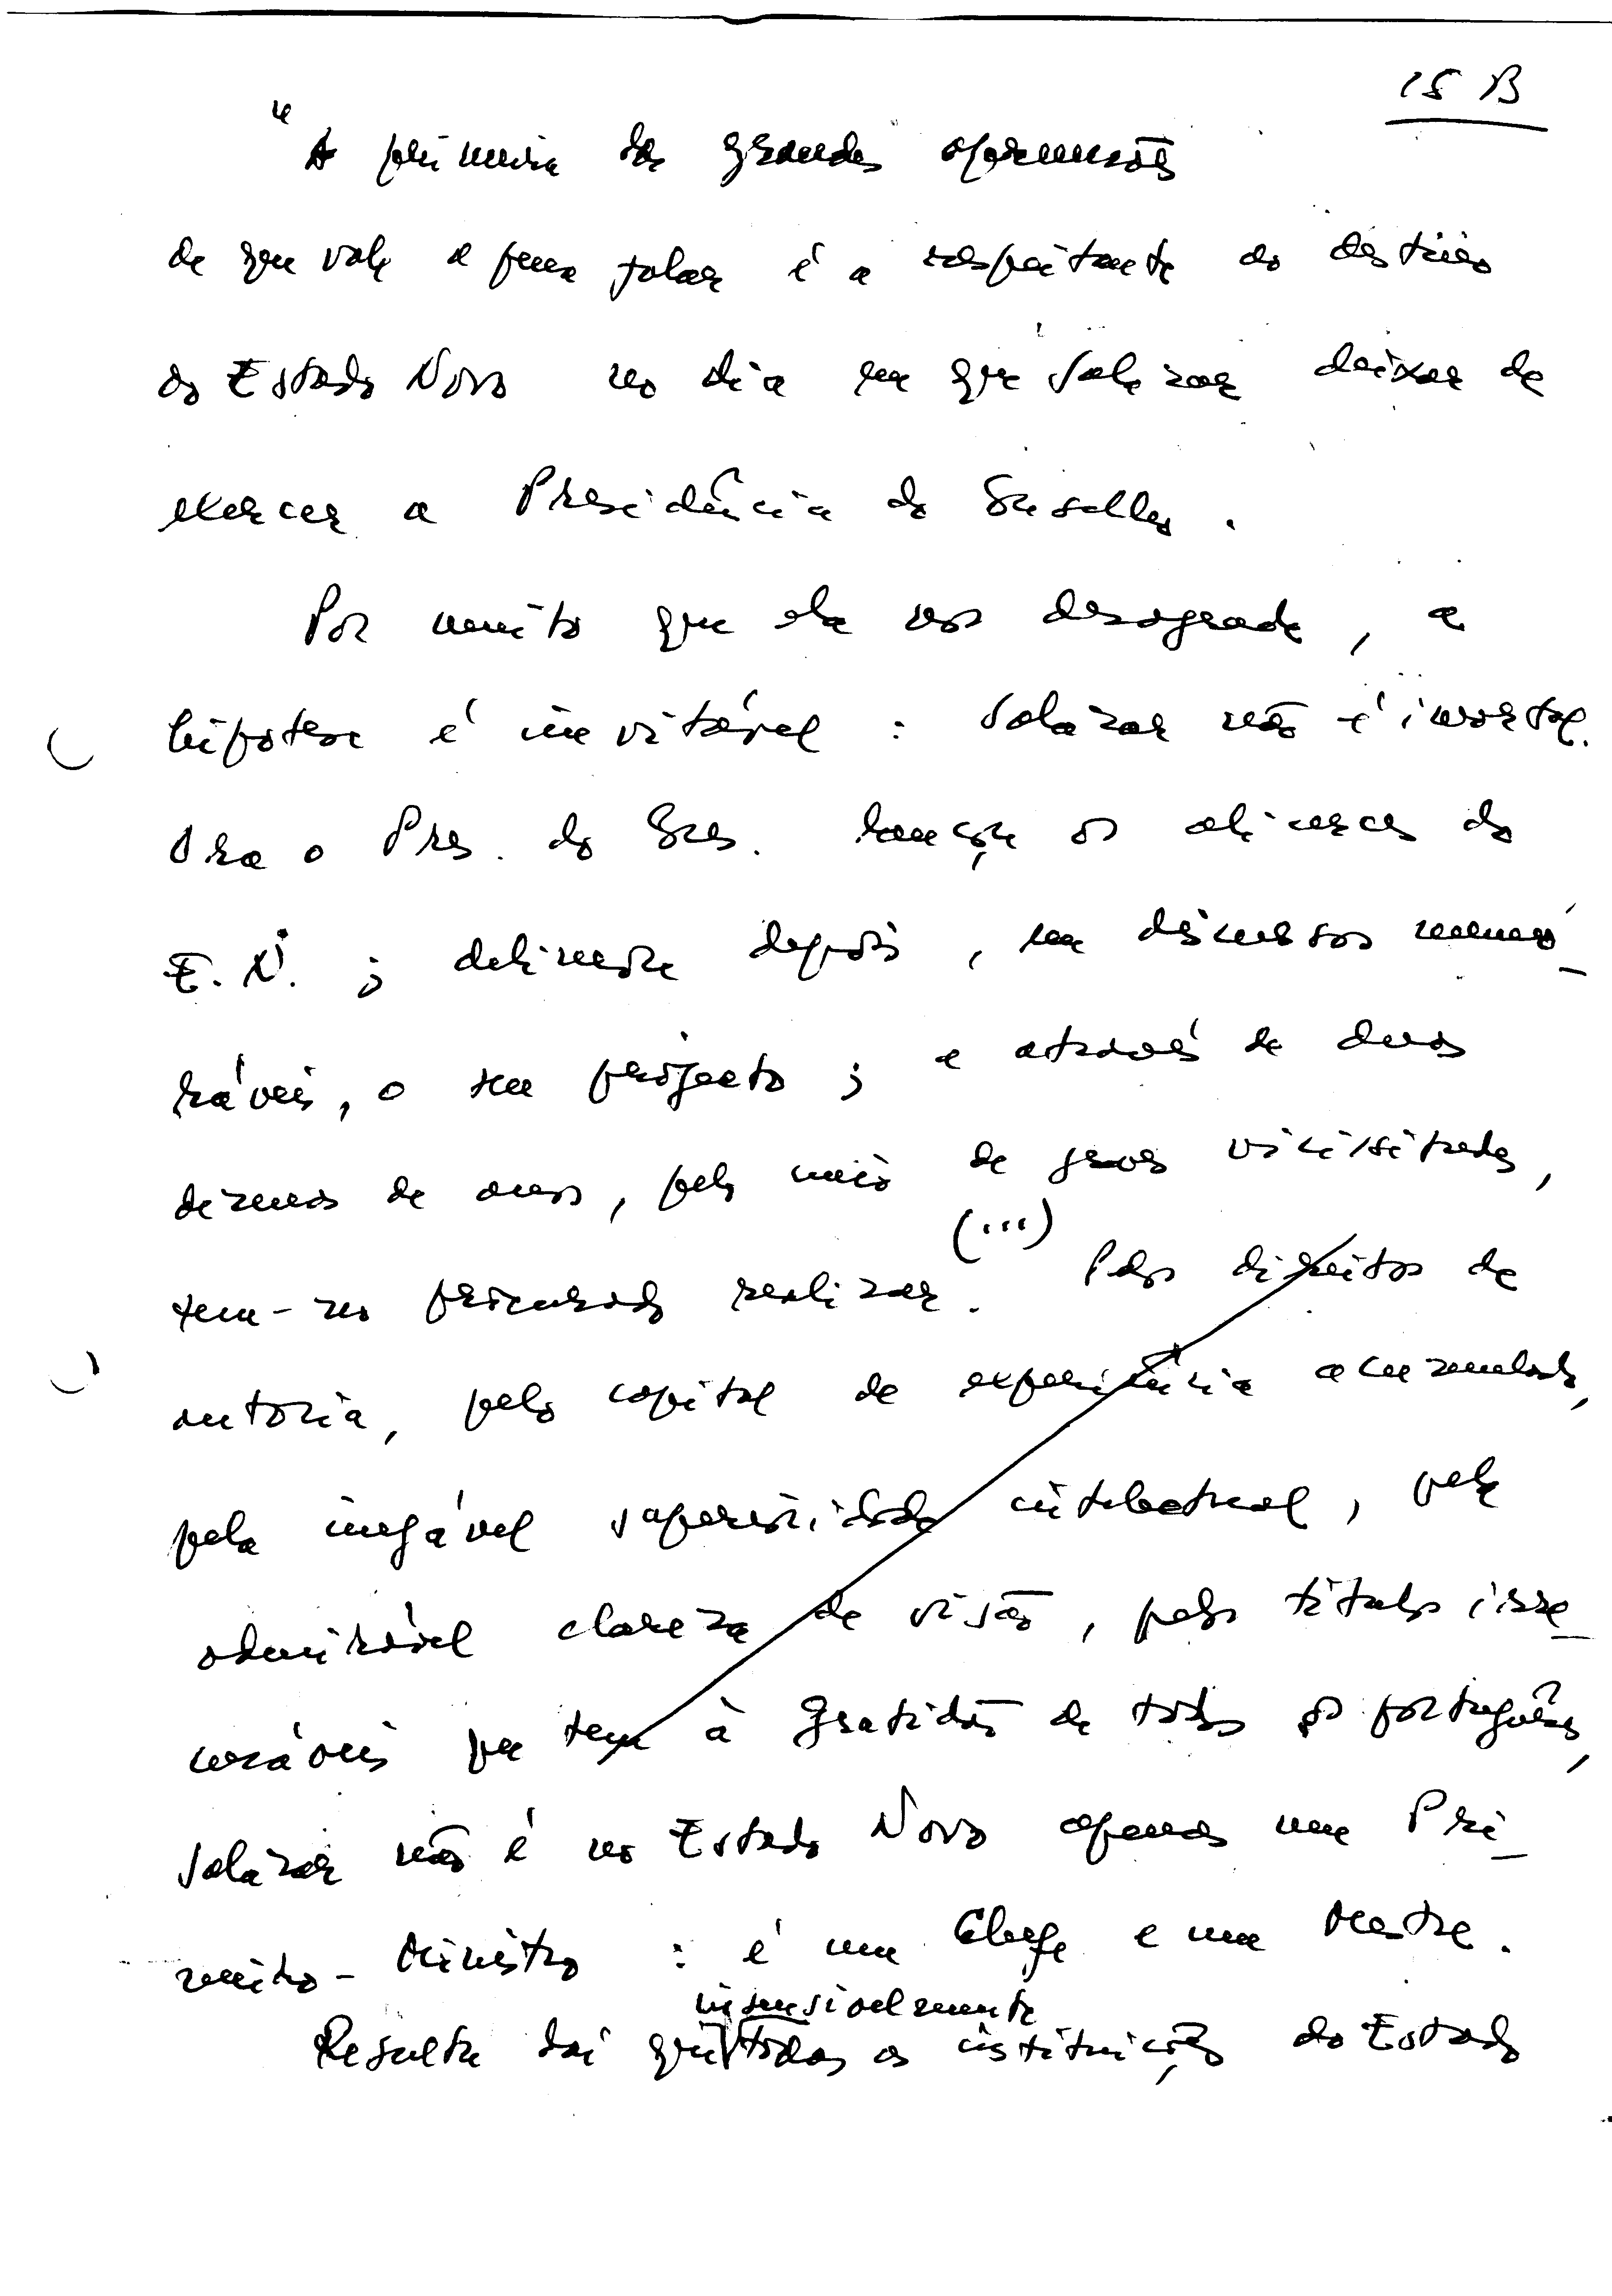 15 B
"A primeira das grandes apreensões
de que vale a pena falar é a respeitante ao destino
do Estado Novo no dia em que Salazar deixar de
exercer a Presidência do Conselho.
Por muito que ela nos desagrade, a
hipótese é inevitável: Salazar não é imortal.
Ora o Pres. do Cons. lançou os alicerces do
E.N.; delineou depois, em discursos memo-
ráveis, o seu projecto; e através de duas
dezenas de anos, pelo meio de graves vicissitudes,
tem-no procurado realizar. (...) Pelos direitos de
autoria, pelo capital de experiência acumulado,
pela inegável superioridade intelectual, pela
admirável clareza de visão, pelos títulos inse-
ráveis que tem à gratidão de todos os portugueses,
Salazar não é no Estado Novo apenas um Pri-
meiro-Ministro: é um Chefe e um Mestre.
insensivelmente
Resulta daí que todas as instituições do Estado